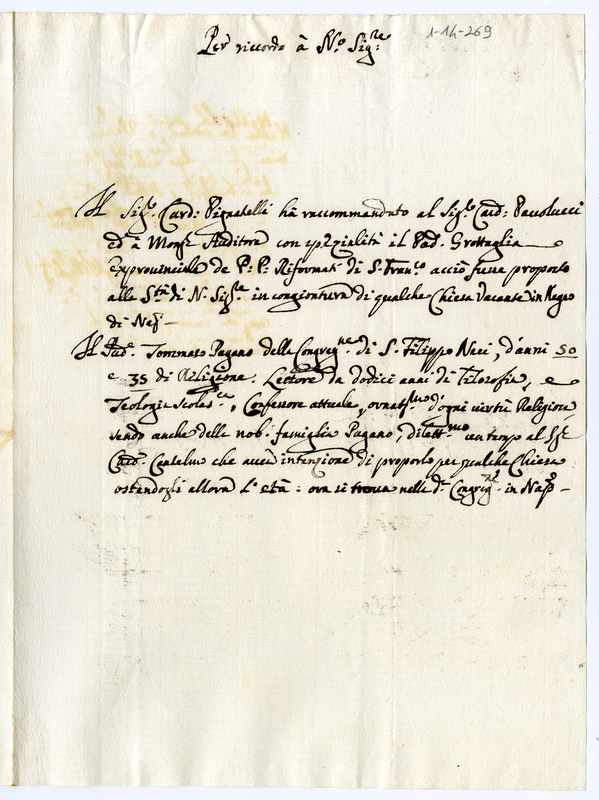 1-14-269
Per riccordo à N.ro Sig.re
Il Sig.r Card: Pignatelli hà raccommandato al Sig.r Card: Paulucci
ed à Mons.r Auditore con spezialità il Pad. Grottaglia
Exprovinciale de P: P: Riformati di S. Fran.co acciò fusse proposto
alla S.tà di N. Sig.re in congiontura di qualche Chiesa Vacante in Regno
di Nap.
Il Pad.e Tommaso Pagano della Congreg.ne di S. Filippo Neri, d'anni 50
e 35 di Religione. Lettore da dodici anni di Filosofia, e
Teologia Scolas.ca, Confessore attuale, ornat.mo d'ogni virtù Religiosa
sendo anche della nob. famiglia Pagano, dilett.mo un tempo al Sg.r
Card. Cantelmo che avea intenzione di proporlo per qualche Chiesa
ostandogli allora l'età: ora si trova nella d.a Congreg.ne in Nap.